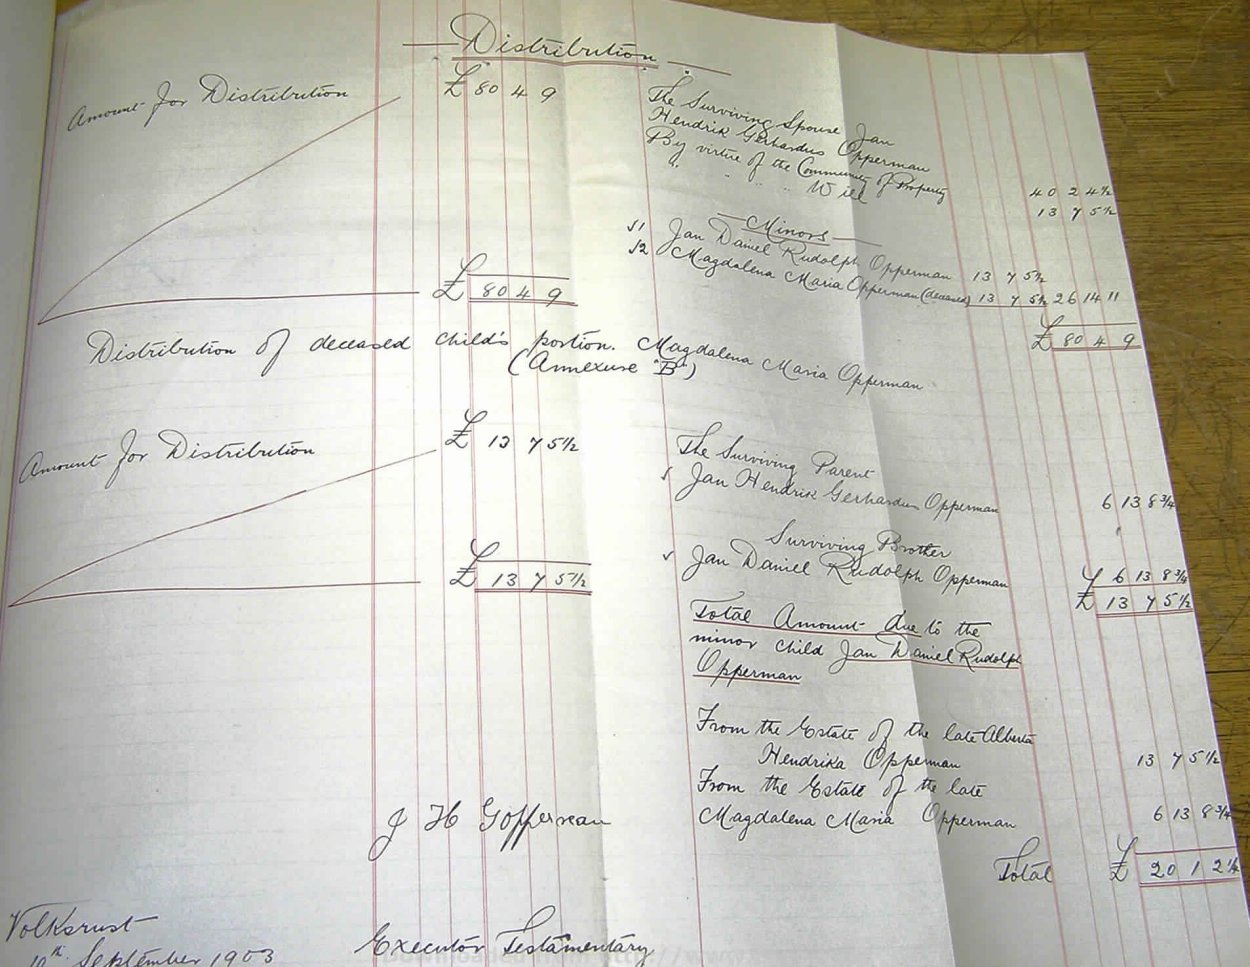 Distribution
Amount for Distribution £ 80 4 9
The Surviving Spouse Jan
Hendrik Gerhardus Opperman
By virtue of the Community of Property 40 2 4½
" " " " Will 13 7 5½
Minors
√1 Jan Daniel Rudolph Opperman 13 7 5½
√2 Magdalena Maria Opperman (deceased) 13 7 5½ 26 14 11
£ 80 4 9
£ 80 4 9
Distribution of deceased child's portion. Magdalena Maria Opperman
(Annexure "B")
Amount for Distribution £ 13 7 5½
The Surviving Parent
√ Jan Hendrik Gerhardus Opperman 6 13 8¾
Surviving Brother
√ Jan Daniel Rudolph Opperman £ 6 13 8¾
£ 13 7 5½
£ 13 7 5½
Total Amount due to the
minor child Jan Daniel Rudolph
Opperman
From the Estate of the late Alberta
Hendrika Opperman 13 7 5½
From the Estate of the late
Magdalena Maria Opperman 6 13 8¾
Total £ 20 1 2¼
J H G Opperman
Executor Testamentary
Volksrust
10th September 1903